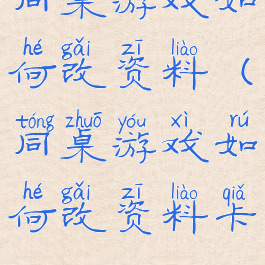 同桌游戏如
hé gǎi zī liào
何改资料(
tóng zhuō yóu xì rú
同桌游戏如
hé gǎi zī liào qiǎ
何改资料卡